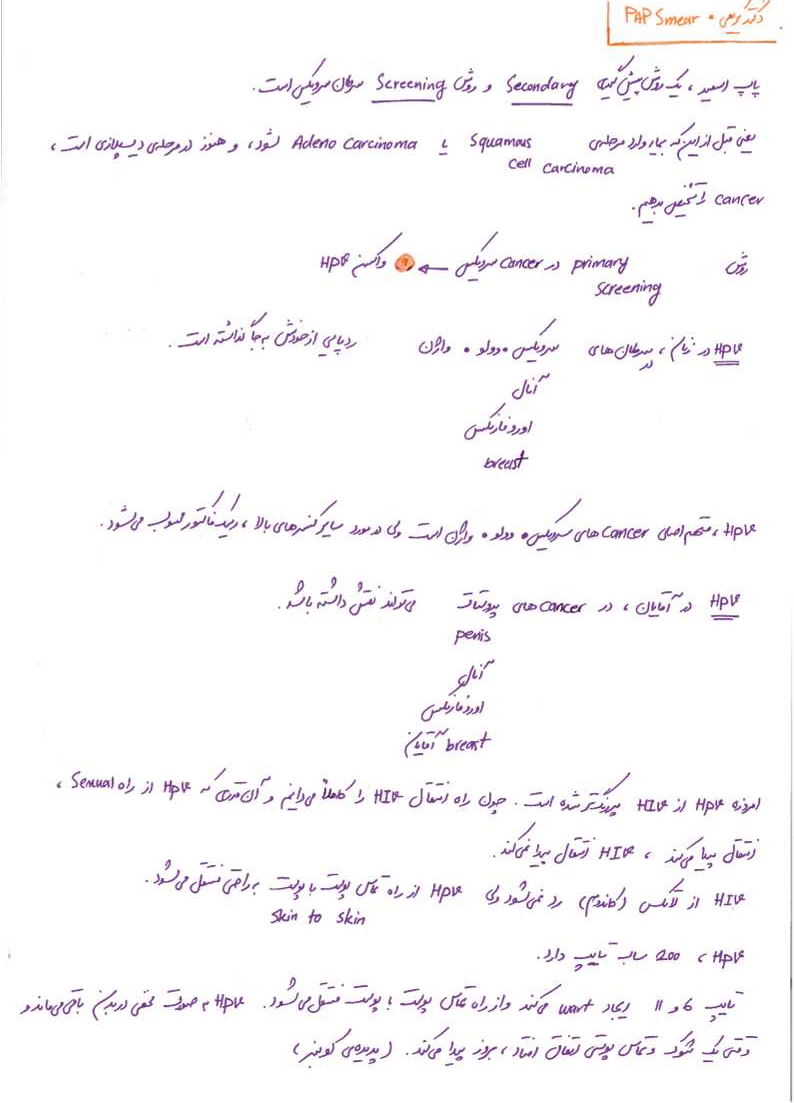 دکتر کریمی • PAP Smear
پاپ اسمیر، یک روش پیش گیری Secondary و روش Screening سرطان سرویکس است.
یعنی قبل از این که بیمار وارد مرحله‌ی Squamous cell carcinoma یا Adeno carcinoma شود، و هنوز در مرحله‌ی دیسپلازی است،
cancer را تشخیص بدهیم.
روش primary screening در cancer سرویکس ← واکسن HPV
HPV در زنان، در سرطان های سرویکس • وولو • واژن ردپایی از خودش به جا گذاشته است.
آنال
اوروفارنکس
breast
HPV، متهم اصلی cancer های سرویکس • وولو • واژن است ولی در مورد سایر کنسرهای بالا، ریسک فاکتور محسوب می‌شود.
HPV در آقایان، در cancer های پروستات می‌تواند نقش داشته باشد.
penis
آنال
اوروفارنکس
breast آقایان
امروزه HPV از HIV پررنگتر شده است. چون راه انتقال HIV را کاملاً می‌دانیم و آن قدری که HPV از راه Sexual،
انتقال پیدا می‌کند، HIV انتقال پیدا نمی‌کند.
HIV از لاتکس (کاندوم) رد نمی‌شود ولی HPV از راه تماس پوست با پوست به راحتی منتقل می‌شود.
skin to skin
HPV، 200 ساب تایپ دارد.
تایپ 6 و 11 ایجاد wart می‌کند و از راه تماس پوست با پوست منتقل می‌شود. HPV به صورت مخفی در بدن باقی می‌ماند و
وقتی یک شوک و تماس پوستی اتفاق افتاد، بروز پیدا می‌کند. (پدیده‌ی کوبنر)